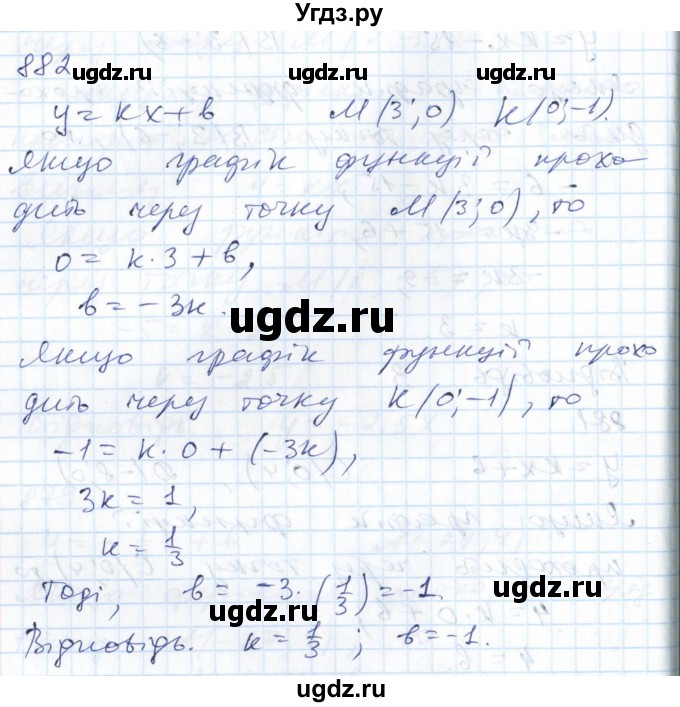 Угдз.ру
882
ugdz.ru ugdz.ru ugdz.ru
y = kx + b M(3; 0) K(0; -1).
Якщо графік функції прохо
дить через точку M(3; 0), то
0 = k·3 + b,
b = -3k.
ugdz.ru
Якщо графік функції прохо
дить через точку K(0; -1), то
-1 = k·0 + (-3k),
3k = 1,
k = 1/3
Тоді, b = -3·(1/3) = -1
ugdz.ru ugdz.ru ugdz.ru
Відповідь. k = 1/3 ; b = -1.
ugdz.ru